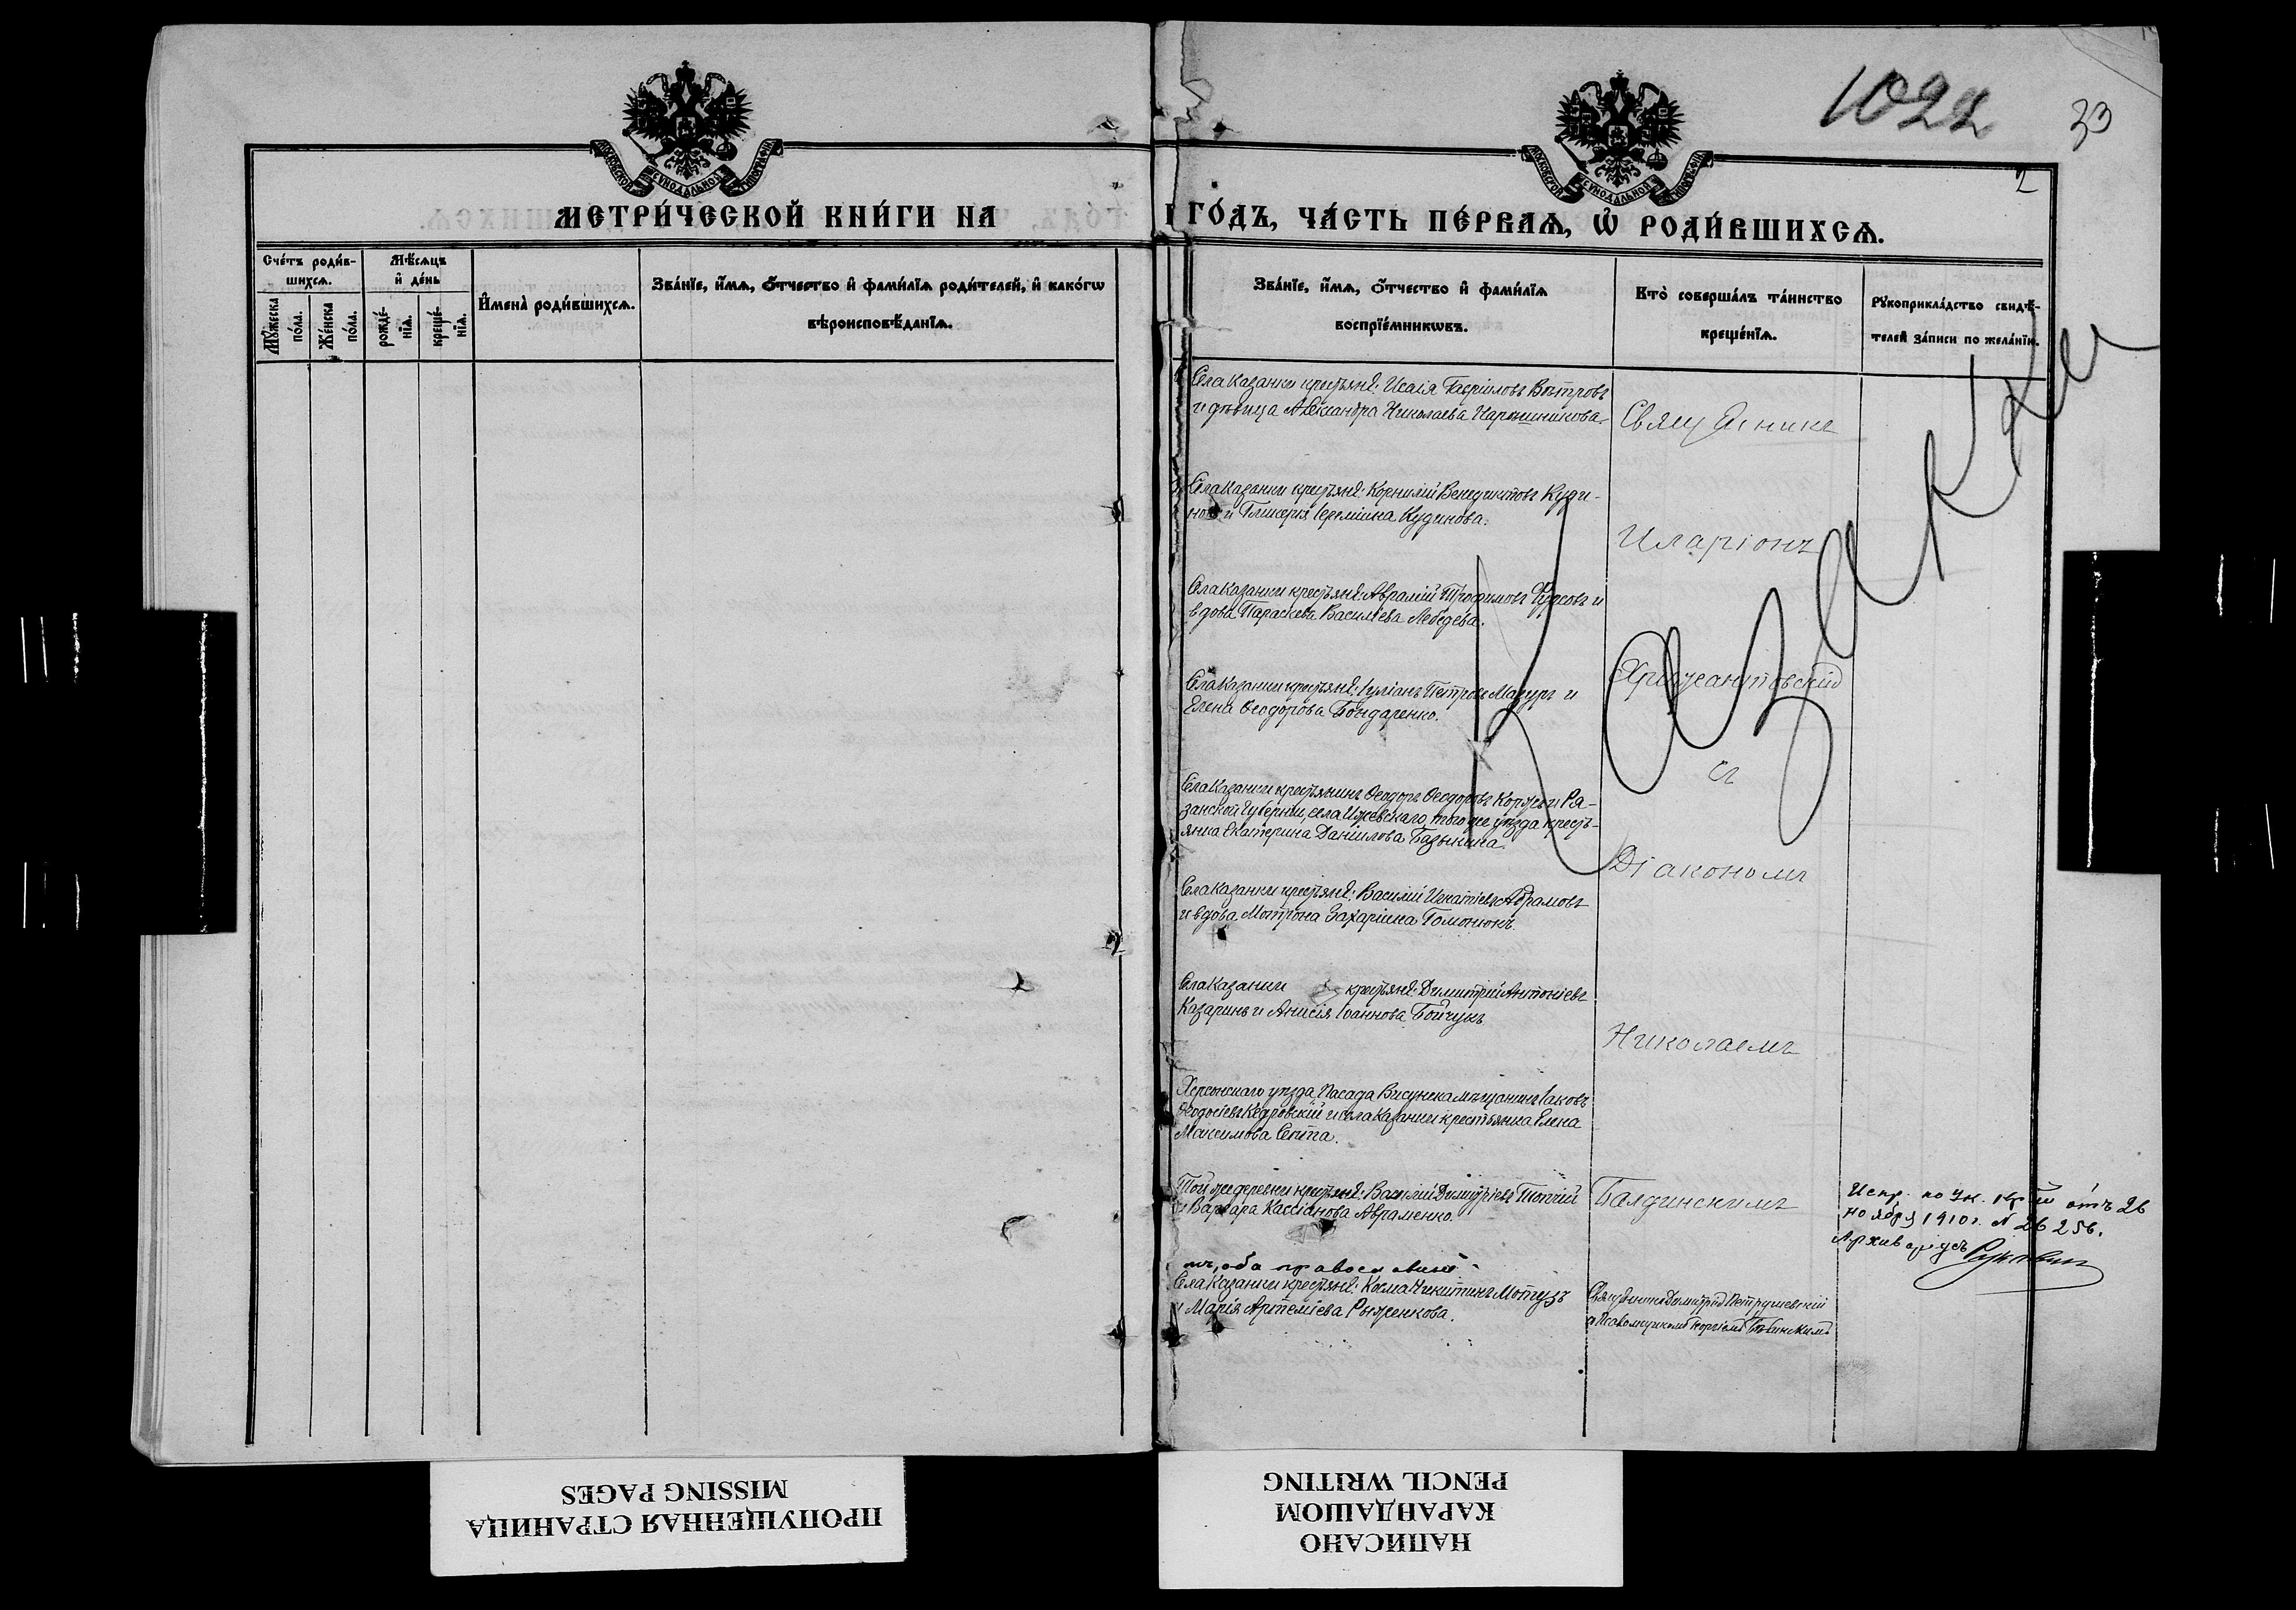 1022
33
2
МОСКОВСКОЙ СѴНОДАЛЬНОЙ ТИПОГРАФІИ
МОСКОВСКОЙ СѴНОДАЛЬНОЙ ТИПОГРАФІИ
МЕТРИ́ЧЕСКОЙ КНИ́ГИ НА
ГО́ДЪ, ЧА́СТЬ ПЕ́РВАѦ, Ѿ РОДИ́ВШИХСѦ.
Сче́тъ роди́в-
шихсѧ.
Мꙋ́жеска
по́ла.
Же́нска
по́ла.
Мѣ́сѧцъ
и҆ де́нь
рожде́-
нїѧ.
креще́-
нїѧ.
И҆мена̀ роди́вшихсѧ.
Зва́нїе, и҆́мѧ, ѻ҆́тчество и҆ фами́лїѧ роди́телей, и҆ како́гѡ
вѣроисповѣ́данїѧ.
Зва́нїе, и҆́мѧ, ѻ҆́тчество и҆ фами́лїѧ
воспрїе́мникѡвъ.
Кто̀ соверша́лъ та́инство
креще́нїѧ.
Рꙋкоприкла́дство свидѣ́-
телей за́писи по жела́нїю.
Села Казанки крестьяне: Исаія Гавріиловъ Вѣтровъ
и дѣвица Александра Николаева
Священникъ
Села Казанки крестьяне: Корнилій Венедиктовъ Куди-
новъ и Гликерія Іереміина Кудинова.
Иларіонъ
Села Казанки крестьяне: Аврамій Трофимовъ Фурсовъ и
вдова Параскева Василіева Лебедева.
Села Казанки крестьяне: Іуліанъ Петровъ Мазуръ и
Елена Ѳеодорова Бондаренко.
Хрисанѳовскій
съ
Села Казанки крестьянинъ Ѳеодоръ Ѳеодоровъ Коржъ и Ря-
занской губерніи, села Ижевскаго, того же уѣзда кресть-
янка Екатерина Даніилова Базыкина.
Діакономъ
Села Казанки крестьяне: Василій Игнатіевъ Абрамовъ
и вдова Матрона Захаріина Гомонюкъ.
Села Казанки крестьяне: Димитрій Антоніевъ
Казаринъ и Анисія Іоаннова Бойчукъ
Николаемъ
Херсонскаго уѣзда, Посада Висунска мѣщанинъ Іаковъ
Ѳеодосіевъ Кедровскій и села Казанки крестьянка Елена
Максимова Септа.
Той же деревни крестьяне: Василій Димитріевъ Топчій
и Варвара Кассіанова Авраменко.
Балдинскимъ
Испр. по Ук. отъ 26
ноября 1910 г. N 26256.
Архиваріусъ
оба православные
Села Казанки крестьяне: Косма Никитинъ Мотузъ
и Марія Артеміева Рыженкова.
Священникъ Димитрій Петрушевскій
съ Псаломщикомъ Георгіемъ
Казанка
ПРОПУЩЕННАЯ СТРАНИЦА
MISSING PAGES
НАПИСАНО
КАРАНДАШОМ
PENCIL WRITING